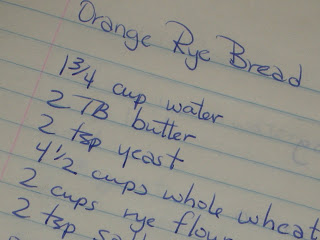 Orange Rye Bread
1 3/4 cup water
2 TB butter
2 tsp yeast
4 1/2 cups whole wheat
2 cups rye flour
2 tsp